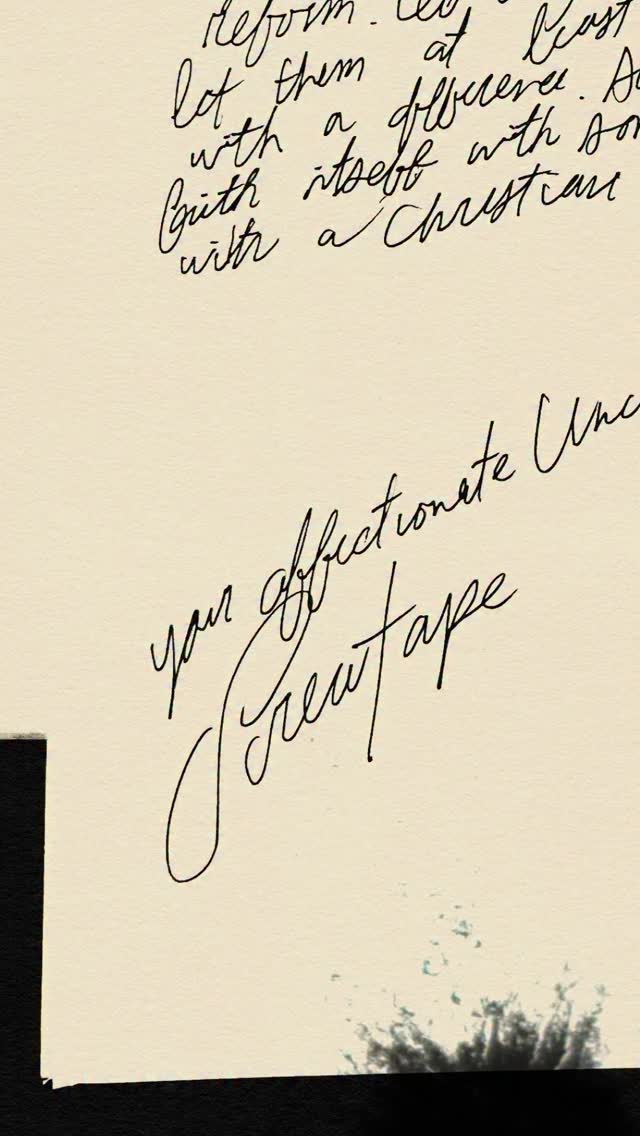 Reform. Let
let them at least
with a difference.
faith itself with som
with a Christian
your affectionate Unc
Screwtape